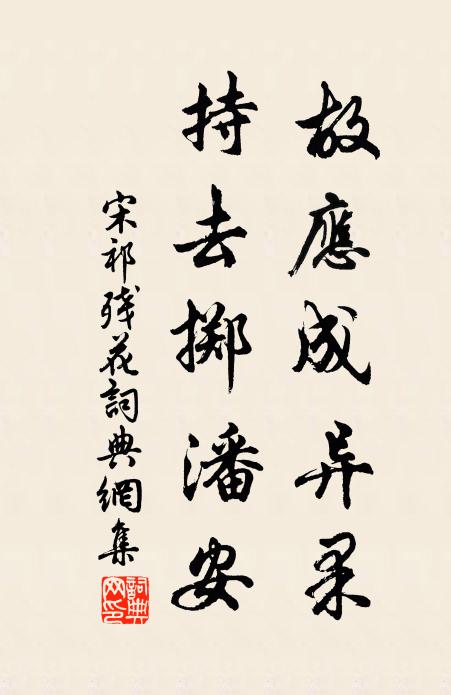 故應成异果
持去掷潘安
宋祁残花詞典網集
詞典网印